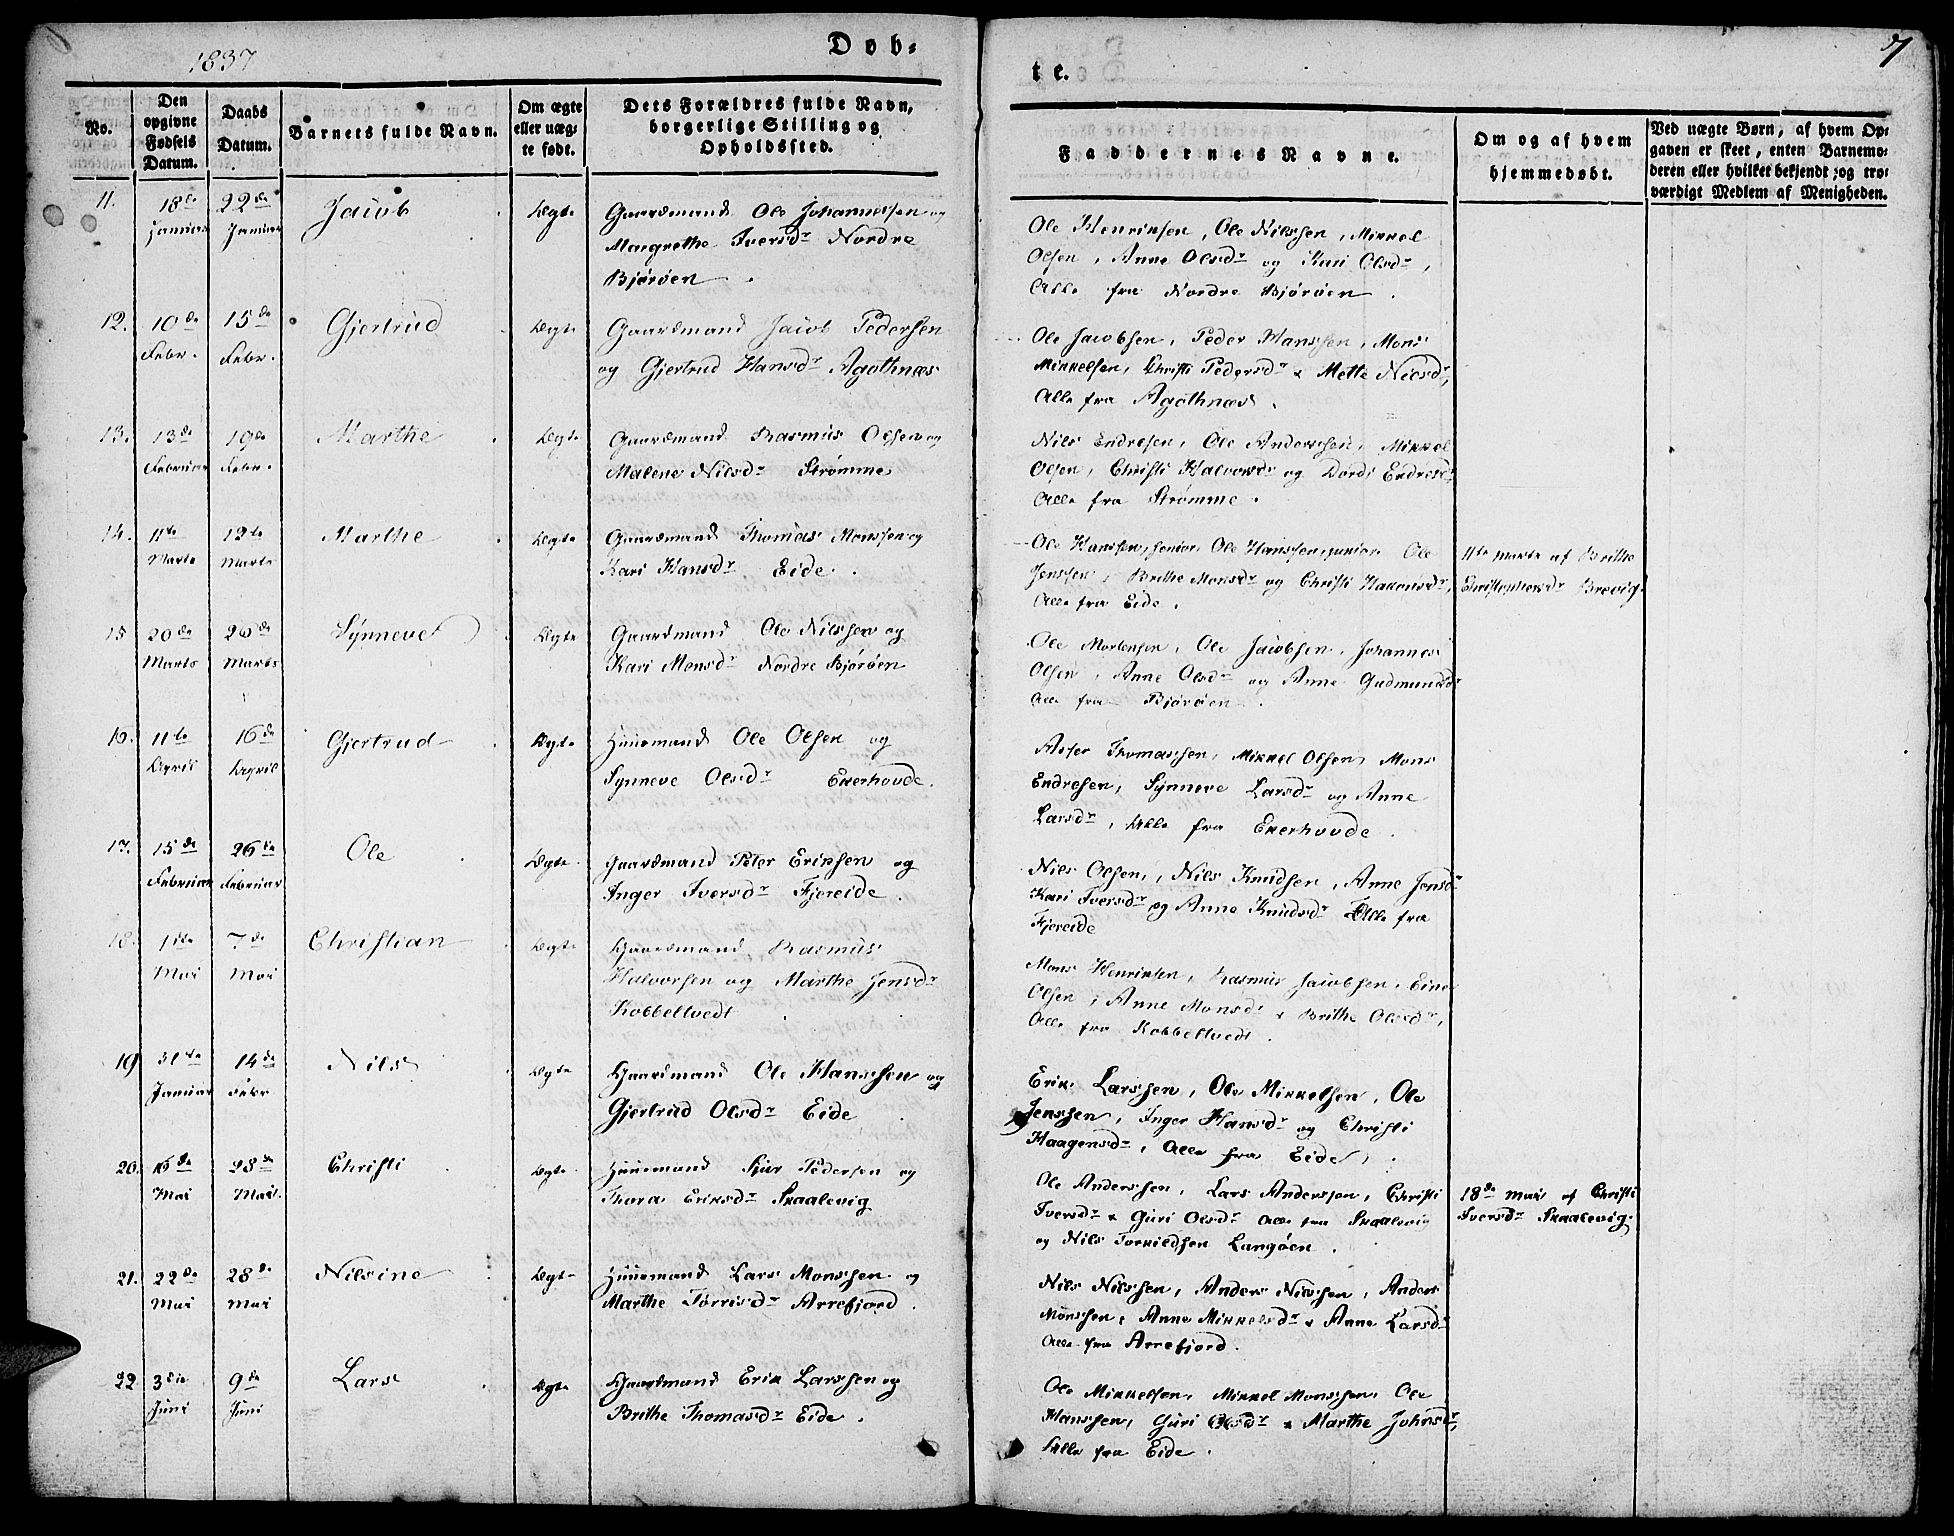 1837
Døb=
te.
7
No.
Den opgivne Fødsels Datum.
Daabs Datum.
Barnets fulde Navn.
Om ægte eller uægte født.
Dets Forældres fulde Navn, borgerlige Stilling og Opholdssted.
Faddernes Navne.
Om og af hvem hjemmedøbt.
Ved uægte Børn, af hvem Op=
gaven er skeet, enten Barnemo=
deren eller hvilket bekjendt og tro=
værdigt Medlem af Menigheden.
11. 18de Januar 22de Januar Jacob Ægte
Gaardmand Ole Johannessen og
Margrethe Iversdr Nordre
Bjørøen
Ole Henriksen, Ole Nilssen, Mikkel
Olsen, Anne Olsdr og Kari Olsdr,
Alle fra Nordre Bjørøen.
12. 10de Febr. 15de Febr. Gjertrud Ægte
Gaardmand Jacob Pedersen
og Gjertrud Hansdr Agothnæs
Ole Jacobsen, Peder Hanssen, Mons
Mikkelsen, Christi Pedersdr & Mette Nielsdr,
Alle fra Agothnæs.
13. 13de Februar 19de Febr. Marthe Ægte
Gaardmand Rasmus Olsen og
Malene Nilsdr Strømme
Nils Endresen, Ole Anderssen, Mikkel
Olsen, Christi Halvorsdr og Dordi Endresdr
Alle fra Strømme.
14. 11te Marts 12te Marts Marthe Ægte
Gaardmand Thomas Monssen og
Kari Hansdr Eide.
Ole Hanssen senior, Ole Hanssen junior, Ole
Jenssen, Brithe Monsdr og Christi Hakonsdr,
Alle fra Eide.
11te Marts af Brithe
Christophersdr Brevig.
15 20de Marts 26de Marts Synneve Ægte
Gaardmand Ole Nilssen og
Kari Monsdr Nordre Bjørøen
Ole Mortensen, Ole Jacobsen, Johannes
Olsen, Anne Olsdr og Anne Gudmundsdr
Alle fra Bjørøen.
16. 11te April 16de April Gjertrud Ægte
Huusmand Ole Olsen og
Synneve Olsdr Ekerhovde.
Thomassen, Mikkel Olsen, Mons
Endresen, Synneve Larsdr og Anne
Larsdr, Alle fra Ekerhovde.
17. 15de Februar 26de Februar Ole Ægte
Gaardmand Peter Eriksen og
Inger Iversdr Fjereide.
Nils Olsen, Nils Knudsen, Anne Jensdr
Kari Iversdr og Anne Knudsdr Alle fra
Fjereide
18. 1ste Mai 7de Mai Christian Ægte
Gaardmand Rasmus
Halvorsen og Marthe Jensdr
Kobbeltvedt
Mons Henriksen, Rasmus Jacobsen, Einar
Olsen, Anne Monsdr & Brithe Olsdr,
Alle fra Kobbeltvedt.
19 31te Januar 14de Febr Nils Ægte
Gaardmand Ole Hanssen og
Gjertrud Olsdr Eide
Erik Larssen, Ole Mikkelsen, Ole
Jenssen, Inger Hansdr og Christi
Haagensdr, Alle fra Eide.
20. 16de Mai 28de Mai. Christi Ægte
Huusmand Sjur Pedersen og
Thora Eriksdr Skaalevig
Ole Anderssen, Lars Anderssen, Christi
Iversdr & Guri Olsdr Alle fra Skaalevig
og Nils Torkildsen Langøen.
18de Mai af Christi
Iversdr Skaalevig.
21. 22de Mai 28de Mai Nilsine Ægte
Huusmand Lars Monssen og
Marthe Torrisdr Arrefjord.
Nils Nilssen, Anders Nilssen, Anders
Monssen, Anne Mikkelsdr & Anne Larsdr
Alle fra Arrefjord.
22 3die Juni 9de Juni Lars Ægte
Gaardmand Erik Larssen og
Brithe Thomasdr Eide.
Ole Mikkelsen, Mikkel Monssen, Ole
Hanssen, Guri Olsdr & Marthe Johnsdr,
Alle fra Eide.